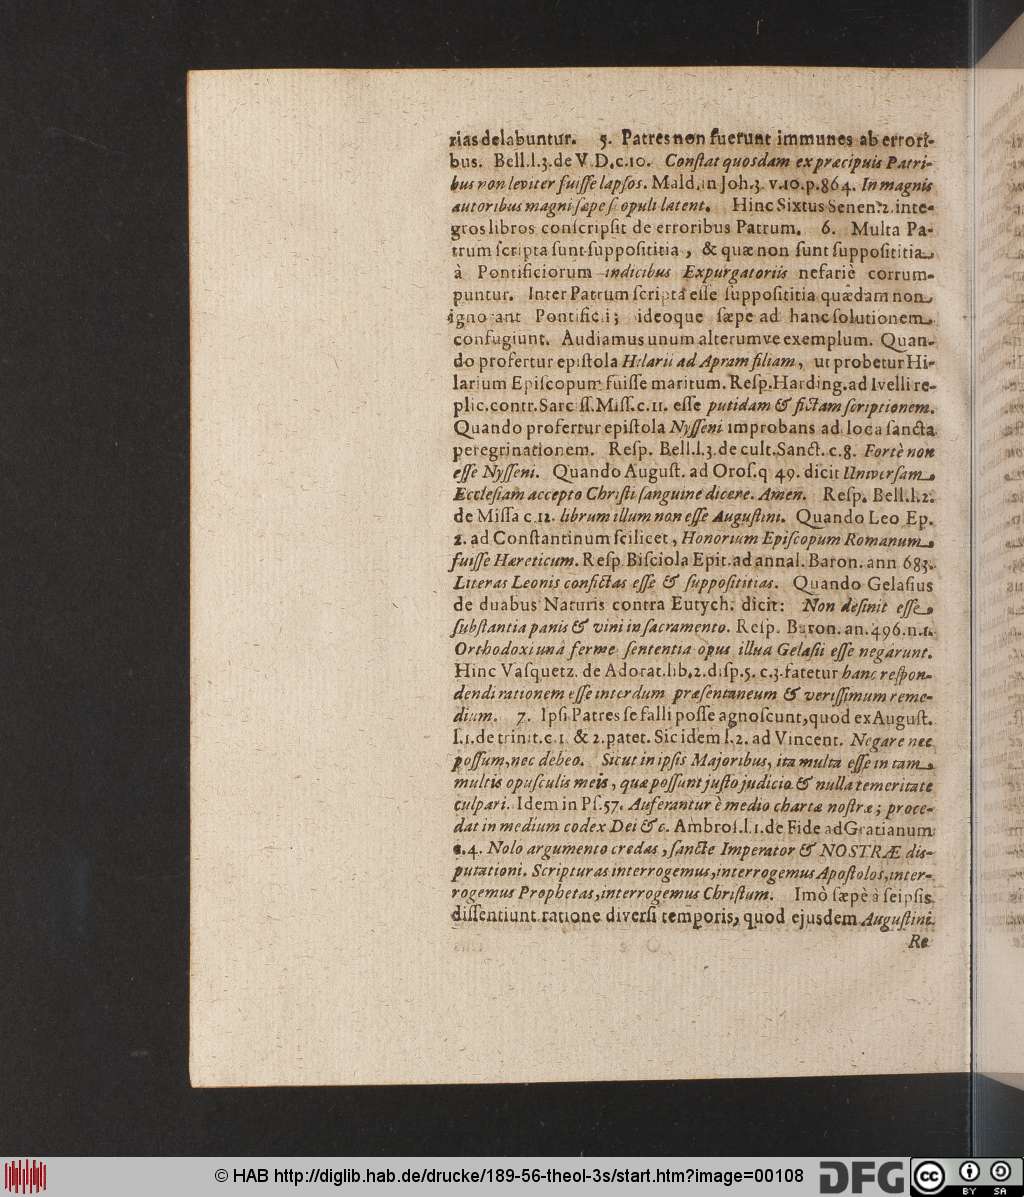 rias delabuntur. 5. Patres non fuerunt immunes ab errori-
bus. Bell.l.3.de V.D.c.10. Conſtat quosdam ex præcipuis Patri-
bus non leviter fuiſſe lapſos. Mald.in Joh.3. v.10.p.864. In magnis
autoribus magni ſæpe ſcopuli latent. Hinc Sixtus Senen.2. inte-
gros libros conſcripſit de erroribus Patrum. 6. Multa Pa-
trum ſcripta ſunt ſuppoſititia, & quæ non ſunt ſuppoſititia
à Pontificiorum indicibus Expurgatoriis nefariè corrum-
puntur. Inter Patrum ſcripta eſſe ſuppoſititia quædam non
ignorant Pontificii; ideoque ſæpe ad hanc ſolutionem
confugiunt. Audiamus unum alterumve exemplum. Quan-
do profertur epiſtola Hilarii ad Apram filiam, ut probetur Hi-
larium Epiſcopum fuiſſe maritum. Reſp.Harding.ad Ivelli re-
plic.contr.Sarc ſſ.Miſſ.c.11. eſſe putidam & fictam ſcriptionem.
Quando profertur epiſtola Nyſſeni improbans ad loca ſancta
peregrinationem. Reſp. Bell.l.3.de cult.Sanct.c.8. Fortè non
eſſe Nyſſeni. Quando Auguſt. ad Oroſ.q 49. dicit Univerſam
Eccleſiam accepto Chriſti ſanguine dicere. Amen. Reſp. Bell.l.2.
de Miſſa c.12. librum illum non eſſe Auguſtini. Quando Leo Ep.
2. ad Conſtantinum ſcilicet, Honorium Epiſcopum Romanum
fuiſſe Hæreticum. Reſp Biſciola Epit.ad annal. Baron. ann 683.
Literas Leonis confictas eſſe & ſuppoſititias. Quando Gelaſius
de duabus Naturis contra Eutych. dicit: Non deſinit eſſe
ſubſtantia panis & vini in ſacramento. Reſp. Baron. an.496.n.1.
Orthodoxi unà ferme ſententia opus illud Gelaſii eſſe negárunt.
Hinc Vaſquetz. de Adorat.lib.2.diſp.5. c.3.fatetur hanc reſpon-
dendi rationem eſſe interdum præſentaneum & veriſſimum reme-
dium. 7. Ipſi Patres ſe falli poſſe agnoſcunt,quod ex Auguſt.
l.1.de trinit.c.1. & 2.patet. Sic idem l.2. ad Vincent. Negare nec
poſſum,nec debeo. Sicut in ipſis Majoribus, ita multa eſſe in tam
multis opuſculis meis, quæ poſſunt juſto judicio & nulla temeritate
culpari. Idem in Pſ.57. Auferantur è medio chartæ noſtræ; proce-
dat in medium codex Dei &c. Ambroſ.l.1.de Fide ad Gratianum
c.4. Nolo argumento credas, ſancte Imperator & NOSTRÆ diſ-
putationi. Scripturas interrogemus,interrogemus Apoſtolos,inter-
rogemus Prophetas,interrogemus Chriſtum. Imò ſæpè à ſeipſis
diſſentiunt ratione diverſi temporis, quod ejusdem Auguſtini
Re
© HAB http://diglib.hab.de/drucke/189-56-theol-3s/start.htm?image=00108
DFG
cc BY SA